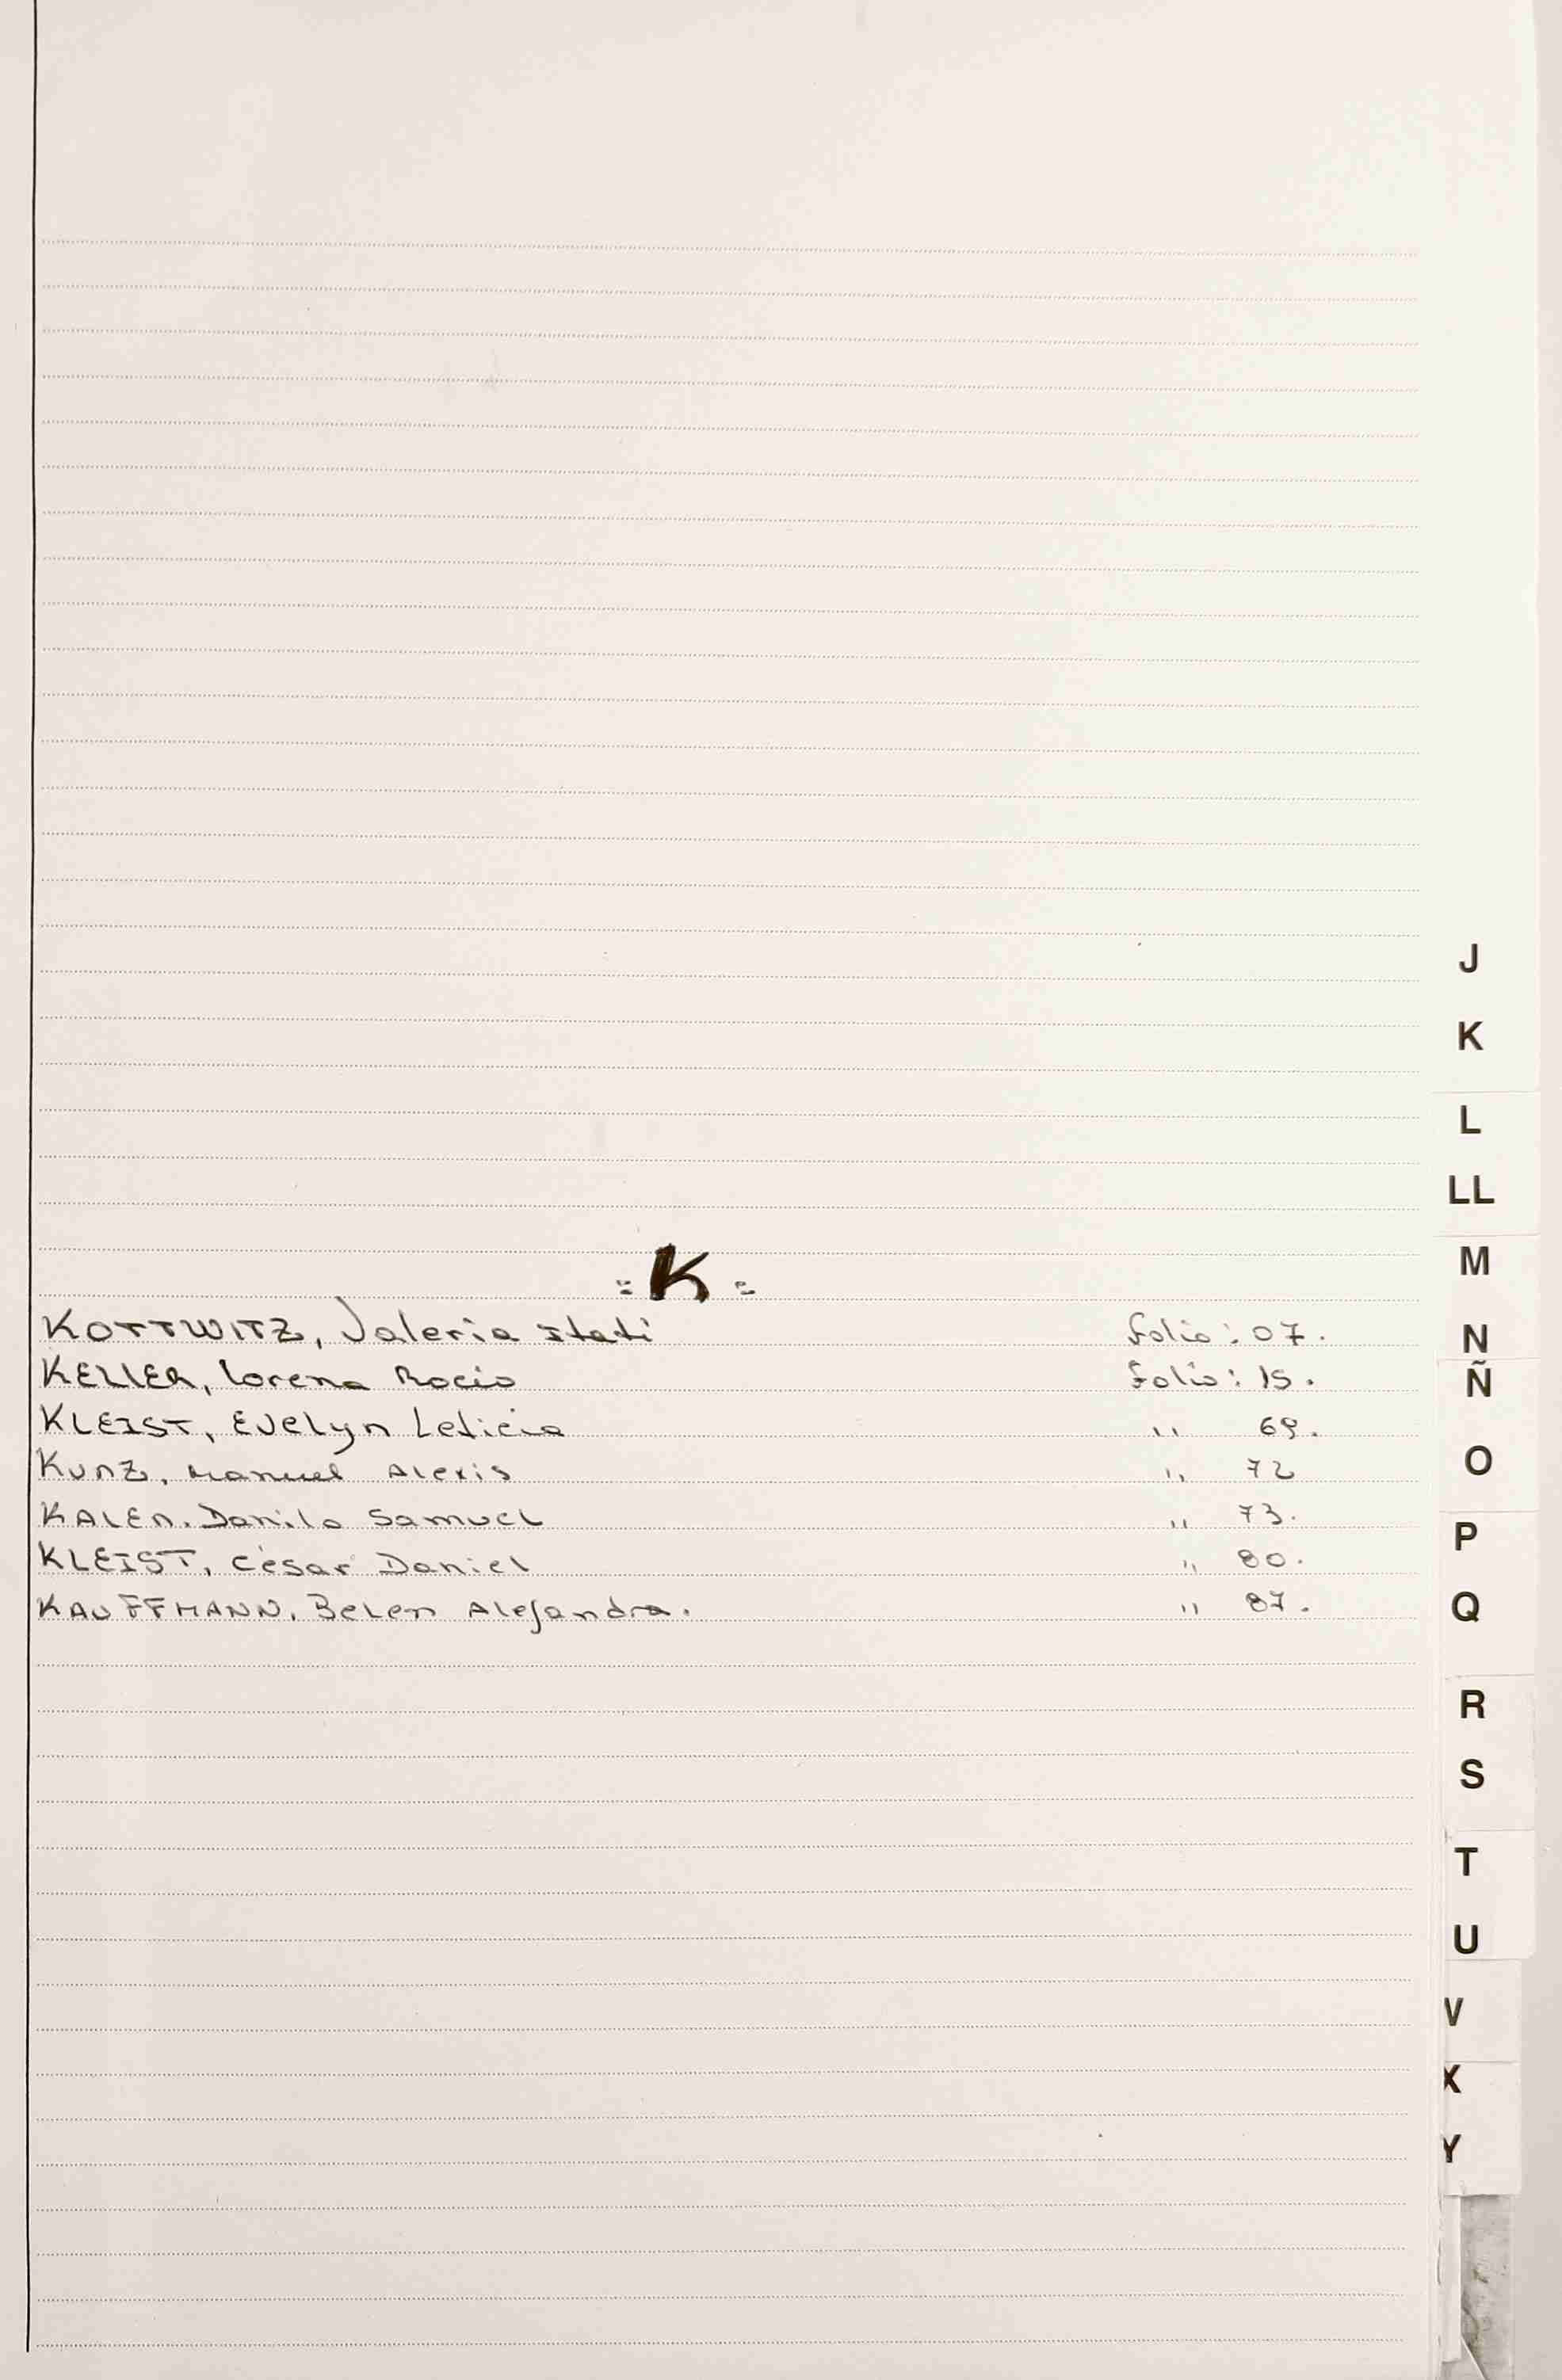 = K =
KOTTWITZ, Valeria Itati folio: 07.
KELLER, Lorena Rocio folio: 15.
KLEIST, Evelyn Leticia " 69.
KUNZ, Manuel Alexis " 72
KALEN. Danilo Samuel " 73.
KLEIST, César Daniel " 80.
KAUFFMANN. Belen Alejandra. " 87.
J
K
L
LL
M
N
Ñ
O
P
Q
R
S
T
U
V
X
Y